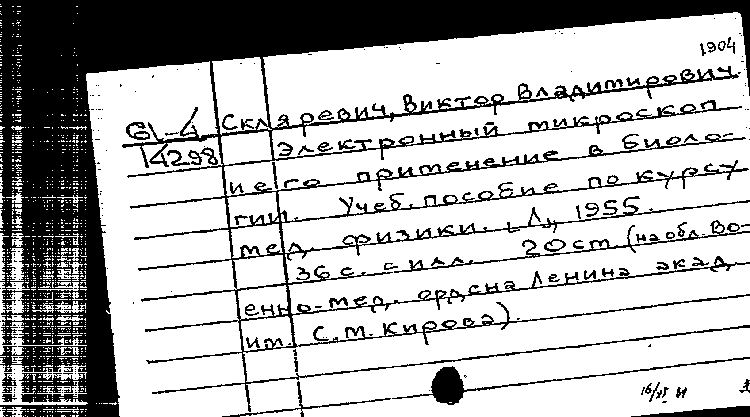 1904
61-4 Скляревич, Виктор Владимирович.
14298 Электронный микроскоп
и его применение в биоло-
гии. Учеб. пособие по курсу
мед. физики. [Л], 1955.
36 с. с илл. 20 см (на обл. Во-
енно-мед. ордена Ленина акад
им. С.М. Кирова).